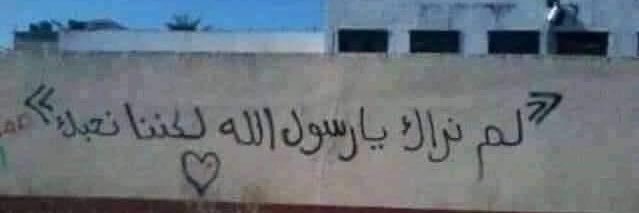 «لم نراك يا رسول الله لكننا نحبك»